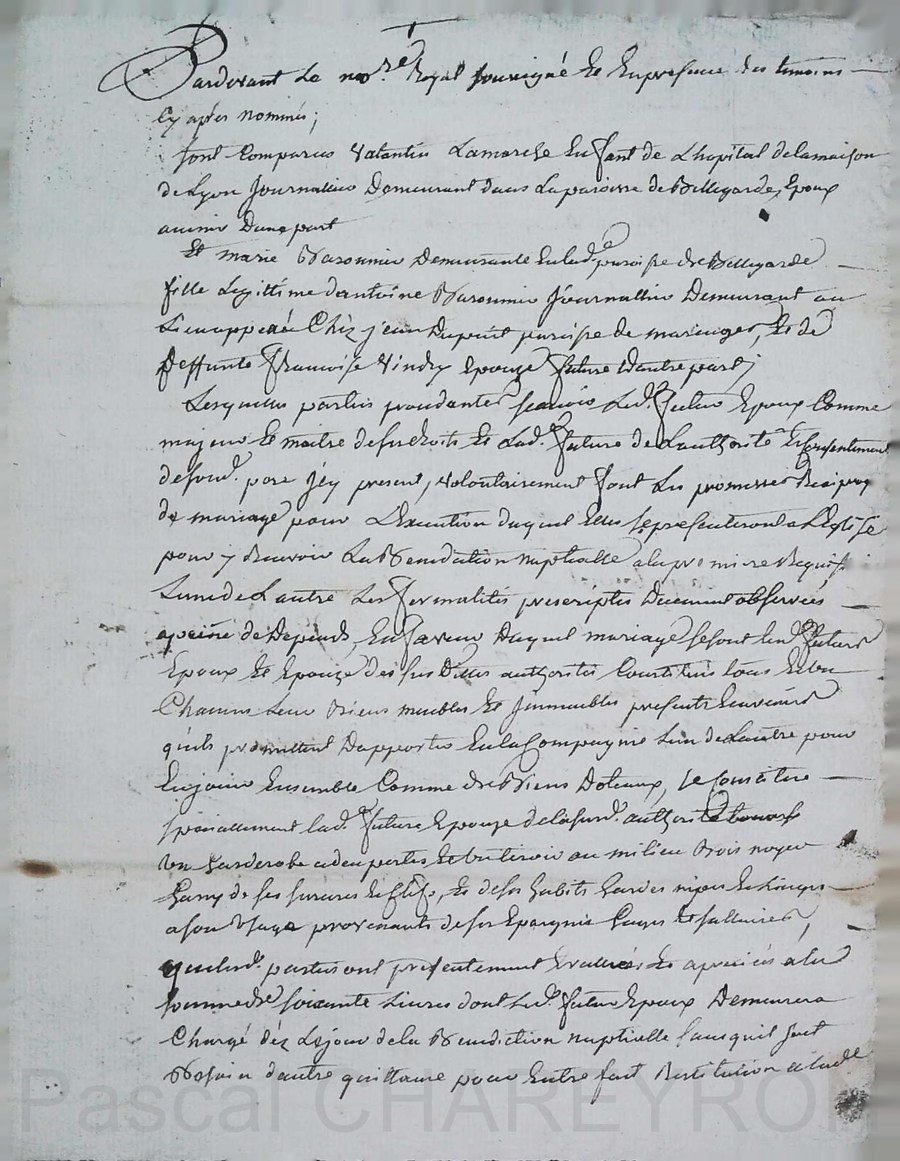 Pardevant Le no.re Royal soussigné Et En presence des temoins
Cy aprés nommés;
sont Comparus Valantin Lamarche Enfant de L'hopital de la maison
de Lyon Journallier Demeurant dans La paroisse de Bellegarde, Epoux
avenir D'une part
Et marie Basonnier Demeurante En lad.e paroisse de Bellegarde
fille Legittime d'antoine Basonnier Journallier Demeurant au
Lieu appellé Chéz jean Dupuit paroisse de maringes, Et de
deffunte Françoise Vindry Epouze future D'autre part;
Lesquelles parties procedantes sçavoir Led. futur Epoux Comme
majeur Et maitre de ses droits Et Lad. future de L'authorité Et Consentement
de sond. pere Jcy present, volontairement font Les promesses Reciproq
de mariage pour L'Execution duquel Elles se presenteront a L'Eglise
pour y Recevoir La Benediction nuptialle a la premiere Requisi
L'une de L'autre Les formalités prescriptes Duement observées
apeine de Depends, En faveur Duquel mariage se sont Lesd. futurs
Epoux Et Epouze des susdittes authorités Constitués tous Et un
Chacuns Leur Biens meubles Et Jmmeubles presents Et avenirs
qu'ils promettent D'apporter En la Compagnie L'un de L'autre pour
En jouir Ensemble Comme de Biens Dotaux, se Constitue
speciallement lad. future Epouze de la susd. authorité
un Garderobe a deux portes Et un tiroir au milieu Bois noyer
Garny de ses serrures Et clefs, Et de ses habits hardes nipes Et Linges
a son Usage provenants de ses Epargnes Gages Et sallaires,
que lesd. parties ont presentement Evallués Et apreciés a la
somme de soixante Livres dont Led. futur Epoux Demeurera
Chargé déz Le jour de la Benediction nuptialle sans qu'il soit
Besoin d'autre quittance pour Entre fait Restitution a lad.
Pascal CHAREYRON